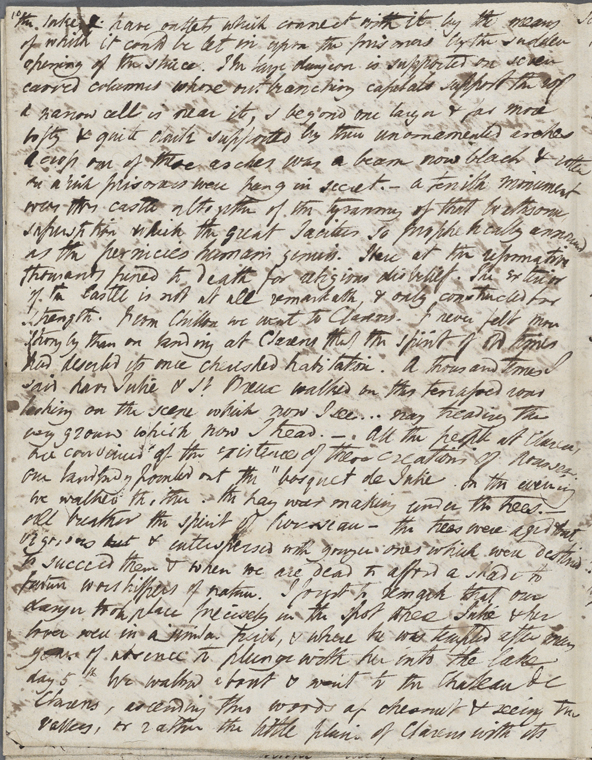 the lake & have outlets which connect with it by the means
of which it could be let in upon the prisoners by the sudden
opening of the sluice. The large dungeon is supported on seven
carved columns whose outbranching capitals support the roof
a narrow cell is near it, & beyond one larger & far more
lofty & quite dark supported by three unornamented arches
across one of these arches was a beam now black & rotten
on which prisoners were hung in secret. — a terrible monument
was this castle of the tyranny of that
superstition which the great Tacitus so prophetically
as the pernicies humani generis. Here at the reformation
thousands pined to death for religious disbelief. The exterior
of the Castle is not at all remarkable, & only constructed for
strength. From Chillon we went to Clarens. I never felt more
strongly than on landing at Clarens that the spirit of old times
had deserted its once cherished habitation. A thousand times
said have Julie & St. Preux walked on this terrassed road
looking on the scene which now I see... nay treading the
very ground which now I tread. ... All the people at Clarens
are convinced of the existence of these creations of
our landlady pointed out the "bosquet de Julie. In the evening
we walked thither: the hay was making under the trees. —
all breathes the spirit of Rousseau — the trees were aged but
vigorous & interspersed with younger ones which were destined
to succeed them & when we are dead to afford a shade to
future worshippers of nature. I forgot to remark that our
danger took place precisely in the spot where Julie & her
lover were in a similar peril, & where he was tempted after many
years of absence to plunge with her into the lake
day 5th We walked about & went to the Chateau de
Clarens, ascending this woods of chesnut & seeing the
valley, or rather the little plain of Clarens with its